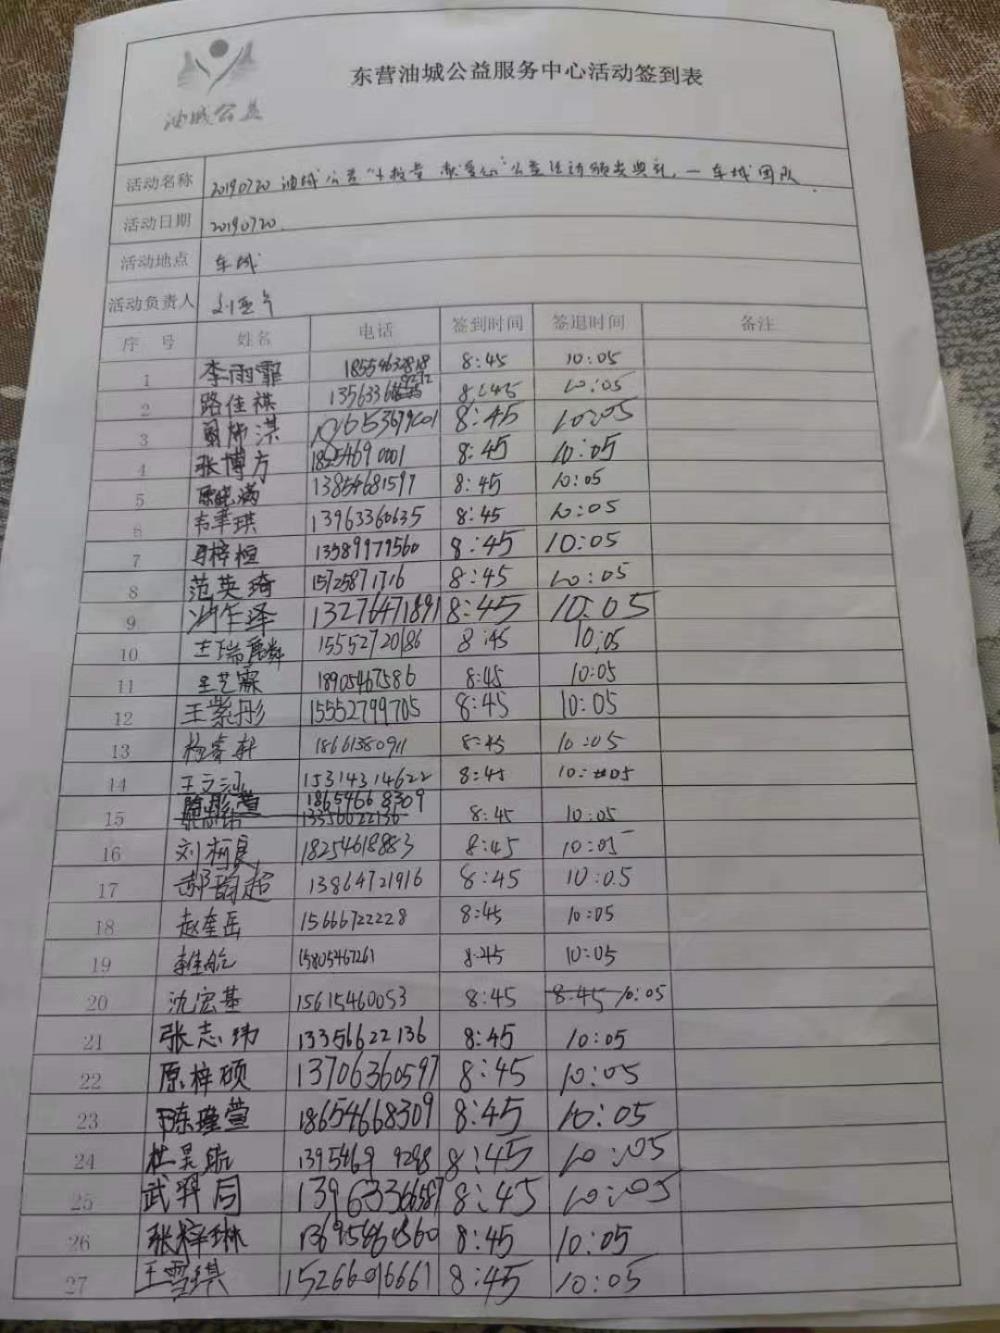 油城公益
东营油城公益服务中心活动签到表
活动名称 20190720 油城公益 公益活动颁奖典礼，一车城团队.
活动日期 20190720.
活动地点 车城
活动负责人
序 号 姓名 电话 签到时间 签退时间 备注
1 李雨霏 8:45 10:05
2 路佳祺 8:45 10:05
3 8:45 10:05
4 张博方 8:45 10:05
5 13854681597 8:45 10:05
6 13963360635 8:45 10:05
7 13589979560 8:45 10:05
8 范英琦 15725871716 8:45 10:05
9 13276471891 8:45 10:05
10 王瑞麟 15552720186 8:45 10:05
11 王艺霖 18905467586 8:45 10:05
12 王紫彤 15552799705 8:45 10:05
13 18661380911 8:45 10:05
14 15314314622 8:45 10:05
15 18654668309 13356622136 8:45 10:05
16 刘柯良 18254618883 8:45 10:05
17 郝韵超 13864721916 8:45 10:05
18 赵奎岳 15666722228 8:45 10:05
19 15805467261 8:45 10:05
20 沈宏基 15615460053 8:45 8:45 10:05
21 张志玮 13356622136 8:45 10:05
22 原梓硕 13706360597 8:45 10:05
23 陈瑾萱 18654668309 8:45 10:05
24 8:45 10:05
25 8:45 10:05
26 张梓琳 8:45 10:05
27 王雪琪 15266016661 8:45 10:05